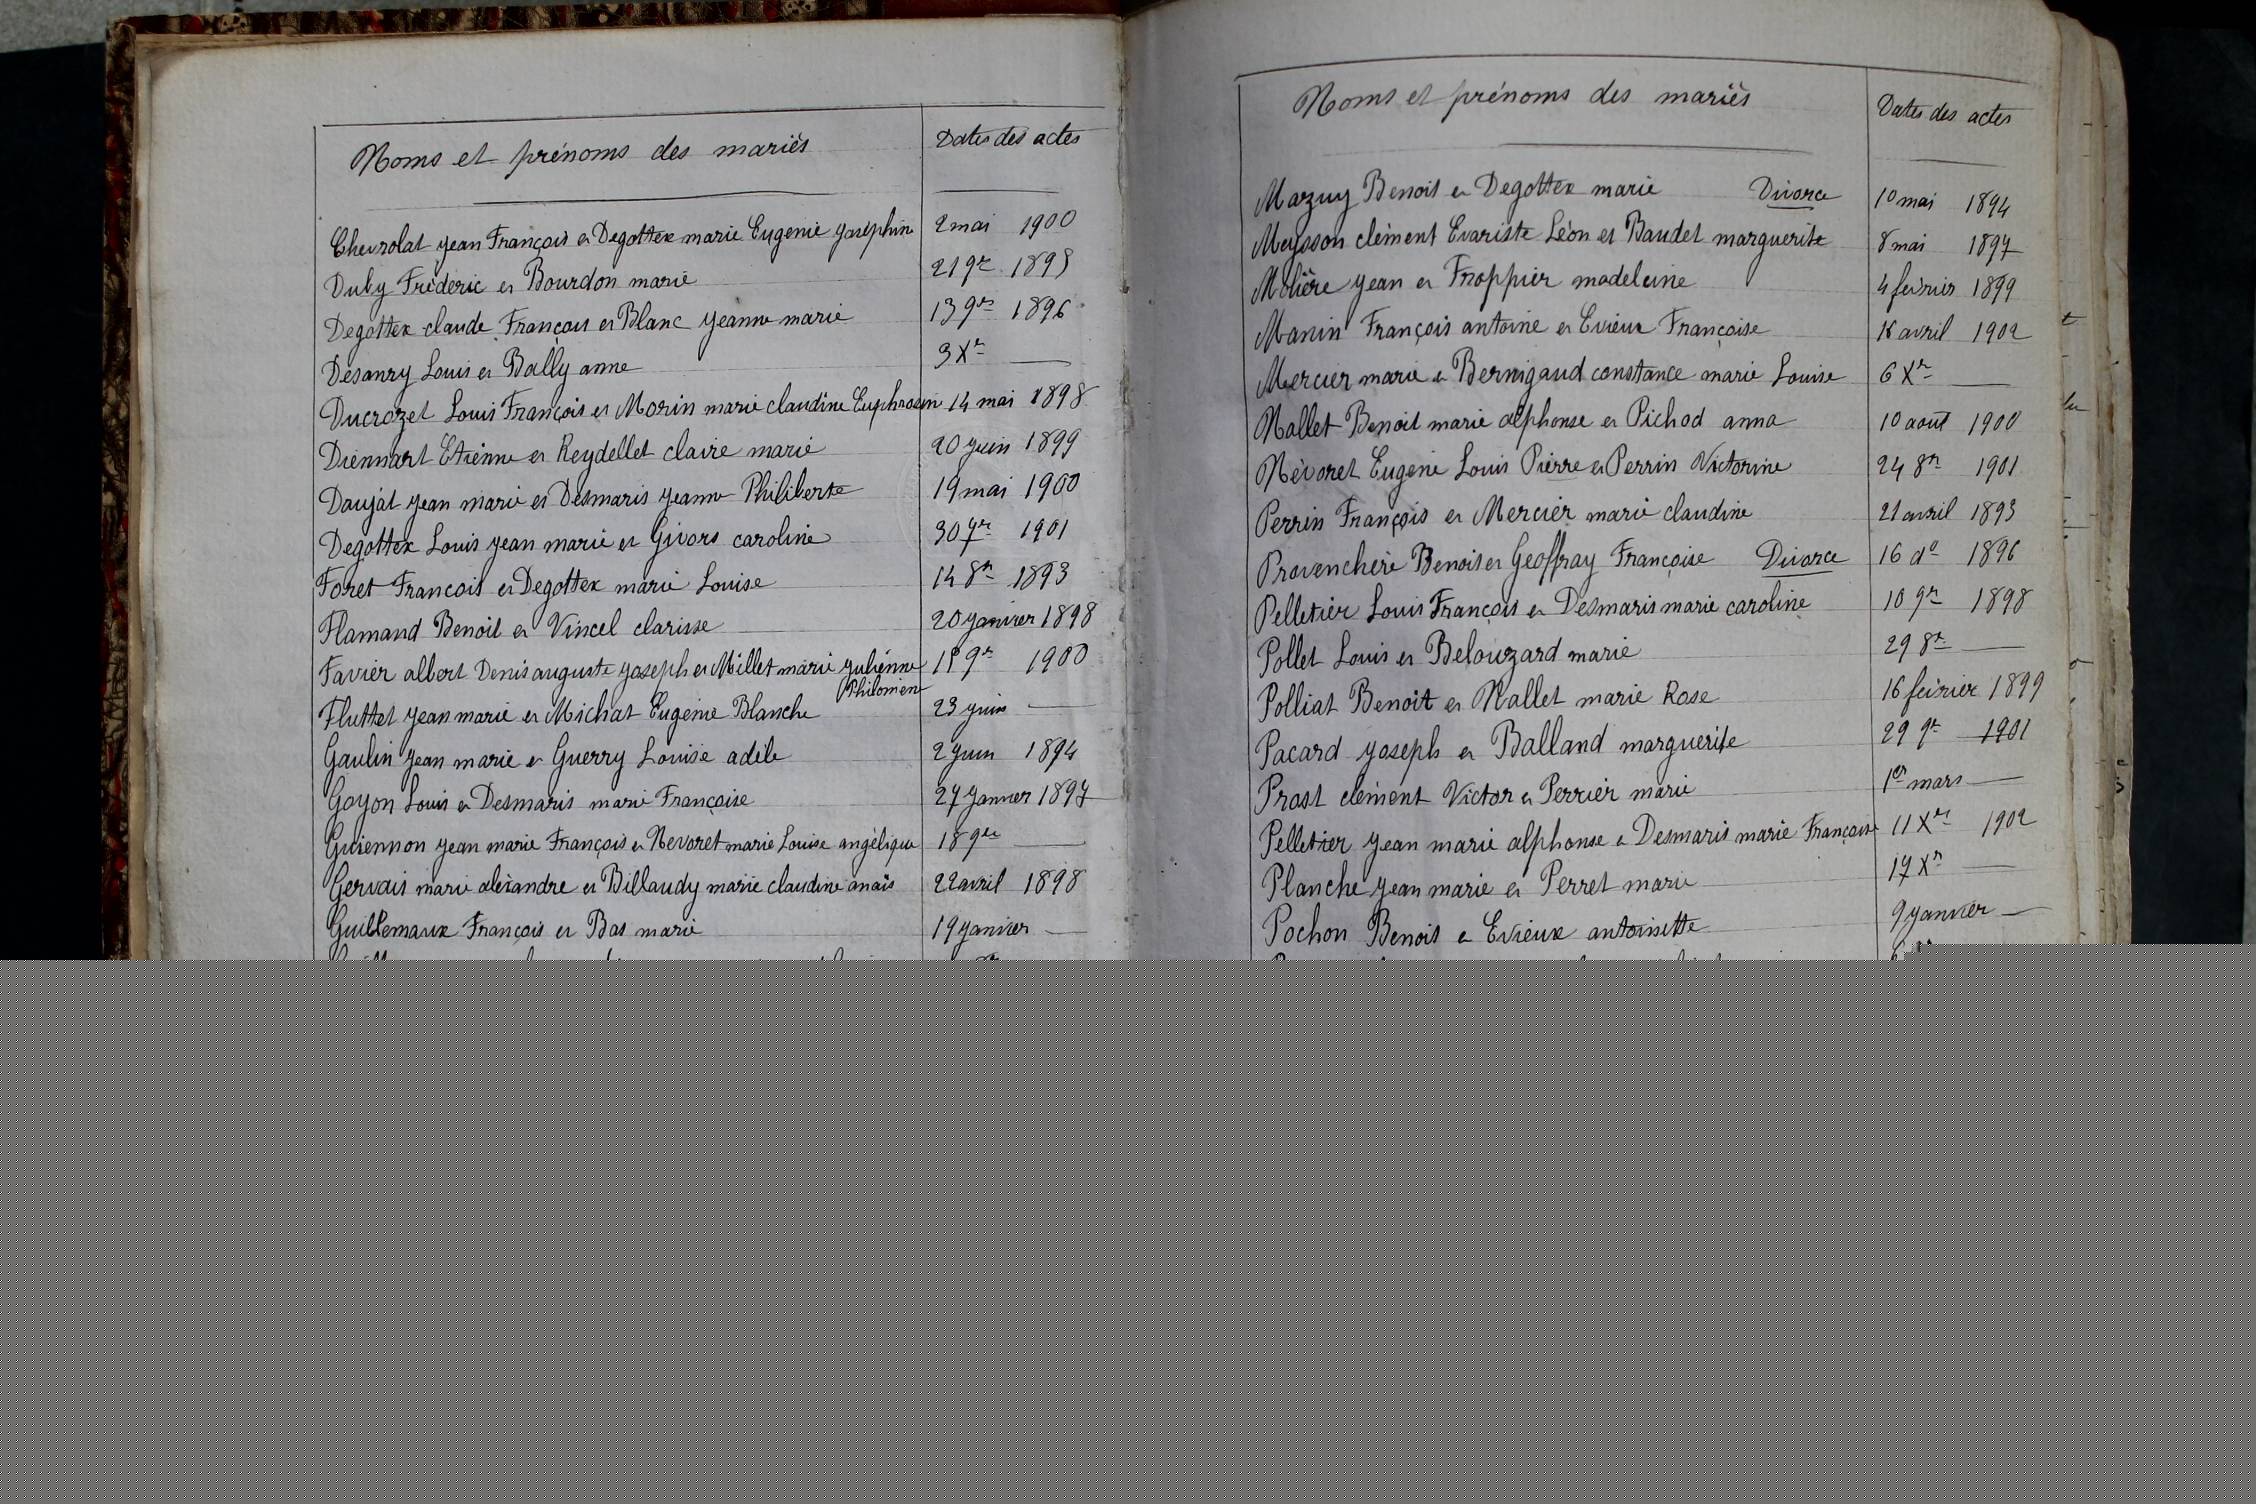 Noms et prénoms des mariés Dates des actes
Chevrolat jean François et Degottex marie Eugenie josephin 2 mai 1900
Duby Fréderic et Bourdon marie 21 9re
Degottex claude François et Blanc jeanne marie 13 9re 1896
Désanry Louis et Bally anne 3 Xre —
Ducrozet Louis François et Morin marie claudine Euphrosin 14 mai 1898
Diennart Etienne et Reydellet claire marie 20 juin 1899
Daujat jean marie et Desmaris jeanne Philiberte 19 mai 1900
Degottex Louis jean marie et Givors caroline 30 1901
Foret François et Degottex marie Louise 14 8re 1893
Flamand Benoit et Vincel clarisse 20 janvier 1898
Favier albert Denis auguste joseph et Millet marie julienne 9re 1900
Philomene
Fluttet jean marie et Michat Eugénie Blanche 23 juin —
Gaulin jean marie et Guerry Louise adèle 2 juin 1894
Goyon Louis et Desmaris marie Françoise 27 janvier 1897
Guiennon jean marie François et Nevoret marie Louise angélique 18 9re —
Gervais marie aléxandre et Billaudy marie claudine anaïs 22 avril 1898
Guillemaux François et Bas marie 19 janvier —
Noms et prénoms des mariés Dates des actes
Marzuy Benoit et Degottex marie Divorce 10 mai 1894
Meysson clément Evariste Léon et Baudet marguerite 8 mai 1897
Molière jean et Froppier madeleine 4 février 1899
Manin François antoine et Evieux Françoise avril 1902
Mercier marie et Bernigaud constance marie Louise 6 Xre —
Nallet Benoit marie alphonse et Pichod anna 10 août 1900
Névoret Eugène Louis Pierre et Perrin Victorine 24 8re 1901
Perrin François et Mercier marie claudine 21 avril 1893
Provenchère Benoit et Geoffray Françoise Divorce 16 do 1896
Pelletier Louis François et Desmaris marie caroline 10 9re 1898
Pollet Louis et Belouzard marie 29 8re —
Polliat Benoit et Nallet marie Rose 16 février 1899
Pacard joseph et Balland marguerite 29 9re 1901
Prost clément Victor et Perrier marie 1er mars —
Pelletier jean marie alphonse et Desmaris marie Françoise 11 Xre 1902
Planche jean marie et Perret marie 17 Xre —
Pochon Benoit et Evieux antoinette 9 janvier —